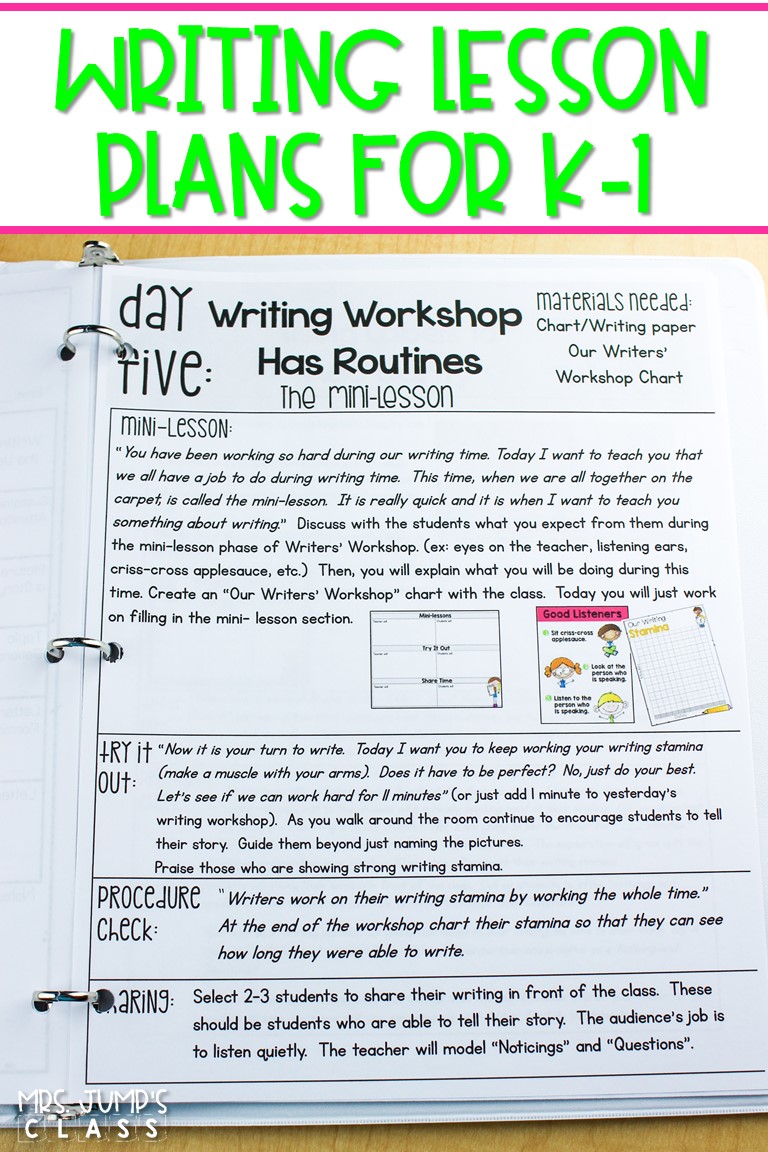 WRITING LESSON
PLANS FOR K-1
day
five:
Writing Workshop
Has Routines
The mini-lesson
materials needed:
Chart/Writing paper
Our Writers'
Workshop Chart
mini-lesson:
"You have been working so hard during our writing time. Today I want to teach you that
we all have a job to do during writing time. This time, when we are all together on the
carpet, is called the mini-lesson. It is really quick and it is when I want to teach you
something about writing." Discuss with the students what you expect from them during
the mini-lesson phase of Writers' Workshop. (ex: eyes on the teacher, listening ears,
criss-cross applesauce, etc.) Then, you will explain what you will be doing during this
time. Create an "Our Writers' Workshop" chart with the class. Today you will just work
on filling in the mini- lesson section.
Mini-lessons
Try It Out
Share Time
Good Listeners
Sit criss-cross
applesauce.
Look at the
person who
is speaking.
Listen to the
person who
is speaking.
Our Writing
Stamina
try it
out:
"Now it is your turn to write. Today I want you to keep working your writing stamina
(make a muscle with your arms). Does it have to be perfect? No, just do your best.
Let's see if we can work hard for 11 minutes" (or just add 1 minute to yesterday's
writing workshop). As you walk around the room continue to encourage students to tell
their story. Guide them beyond just naming the pictures.
Praise those who are showing strong writing stamina.
procedure
check:
"Writers work on their writing stamina by working the whole time."
At the end of the workshop chart their stamina so that they can see
how long they were able to write.
haring:
Select 2-3 students to share their writing in front of the class. These
should be students who are able to tell their story. The audience's job is
to listen quietly. The teacher will model "Noticings" and "Questions".
MRS. JUMP'S
CLASS